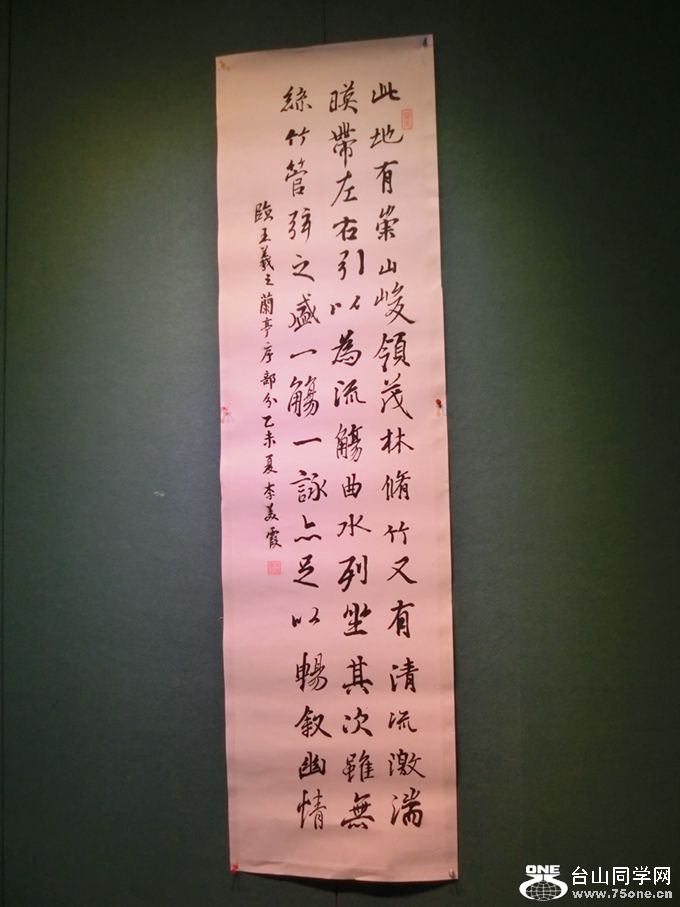 此地有崇山峻領茂林脩竹又有清流激湍
暎帶左右引以為流觴曲水列坐其次雖無
絲竹管弦之盛一觴一詠亦足以暢叙幽情
臨王羲之蘭亭序部分乙未夏李美霞
ONE 台山同学网
www.75one.cn